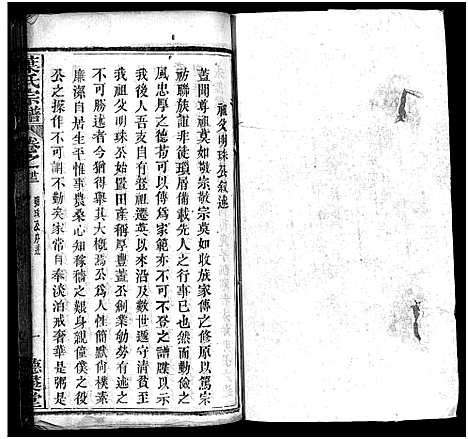 祖父明珠公叙述
蓋聞尊祖莫如敬宗敬宗莫如收族家傳之修原以篤宗
祊聯族誼非徒瑣屑備載先人之行事已也然而勤儉之
風忠厚之德苟可傳爲家範亦不可不登之譜牒以示
我後人也自有登祖遷英以來沿及數世遞守清貧至
我祖父明珠公始置田產稱厚豐蓋公創業劬勞有述之
不可勝述者今猶得舉其大概焉公爲人性簡默尚樸素
廉潔自居生平惟事農桑心知稼穡之艱身親僮僕之役
公之操作不可勝矣家常自奉淡泊戒奢華是粥是
葉氏宗譜
卷之
明珠公序述
一